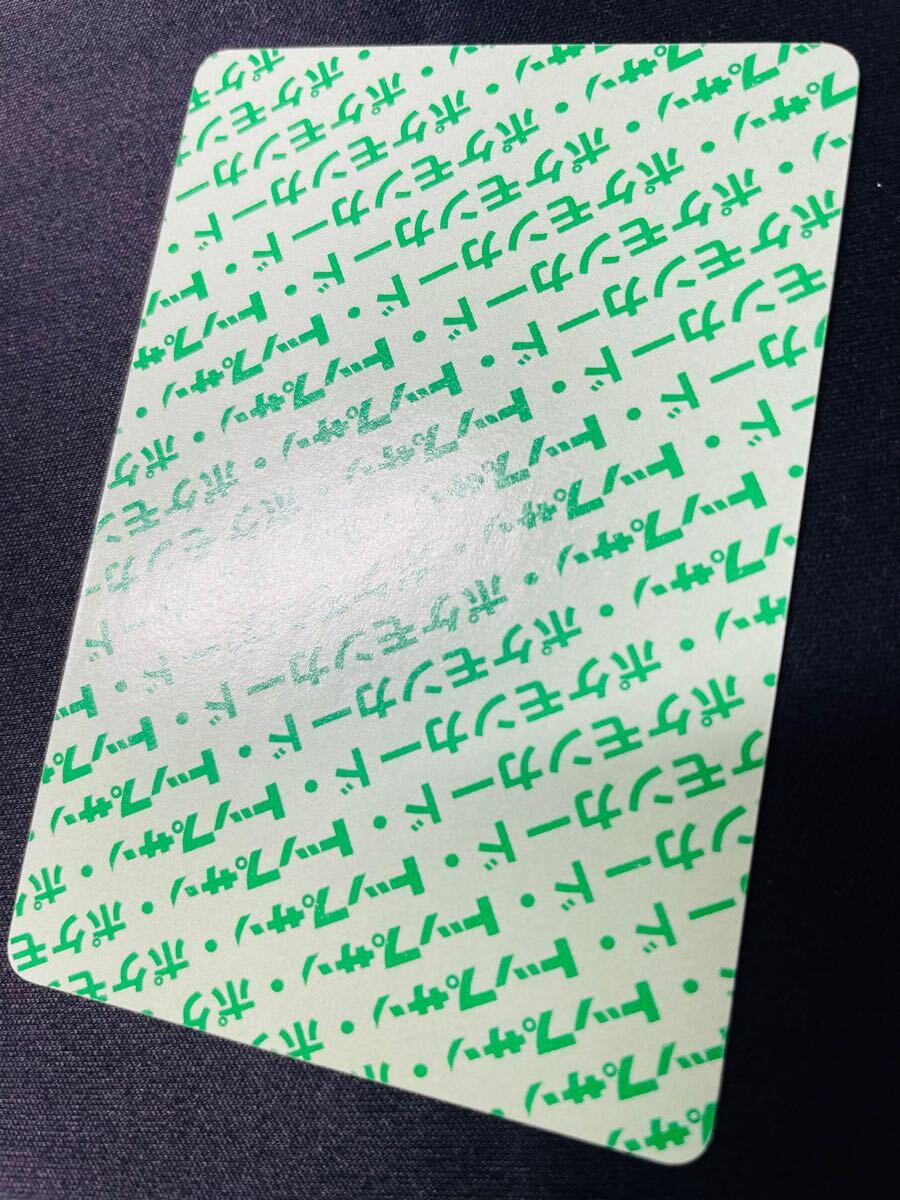 トップサン・ポケモンカード・トップサン・
ポケモンカード・トップサン・ポケモンカード
トップサン・ポケモンカード・トップサン・
ポケモンカード・トップサン・ポケモンカード
トップサン・ポケモンカード・トップサン・
ポケモンカード・トップサン・ポケモンカード
トップサン・ポケモンカード・トップサン・
ポケモンカード・トップサン・
ポケモンカード・トップサン・
ポケモンカード・トップサン・
ポケモンカード・
ポケモンカード